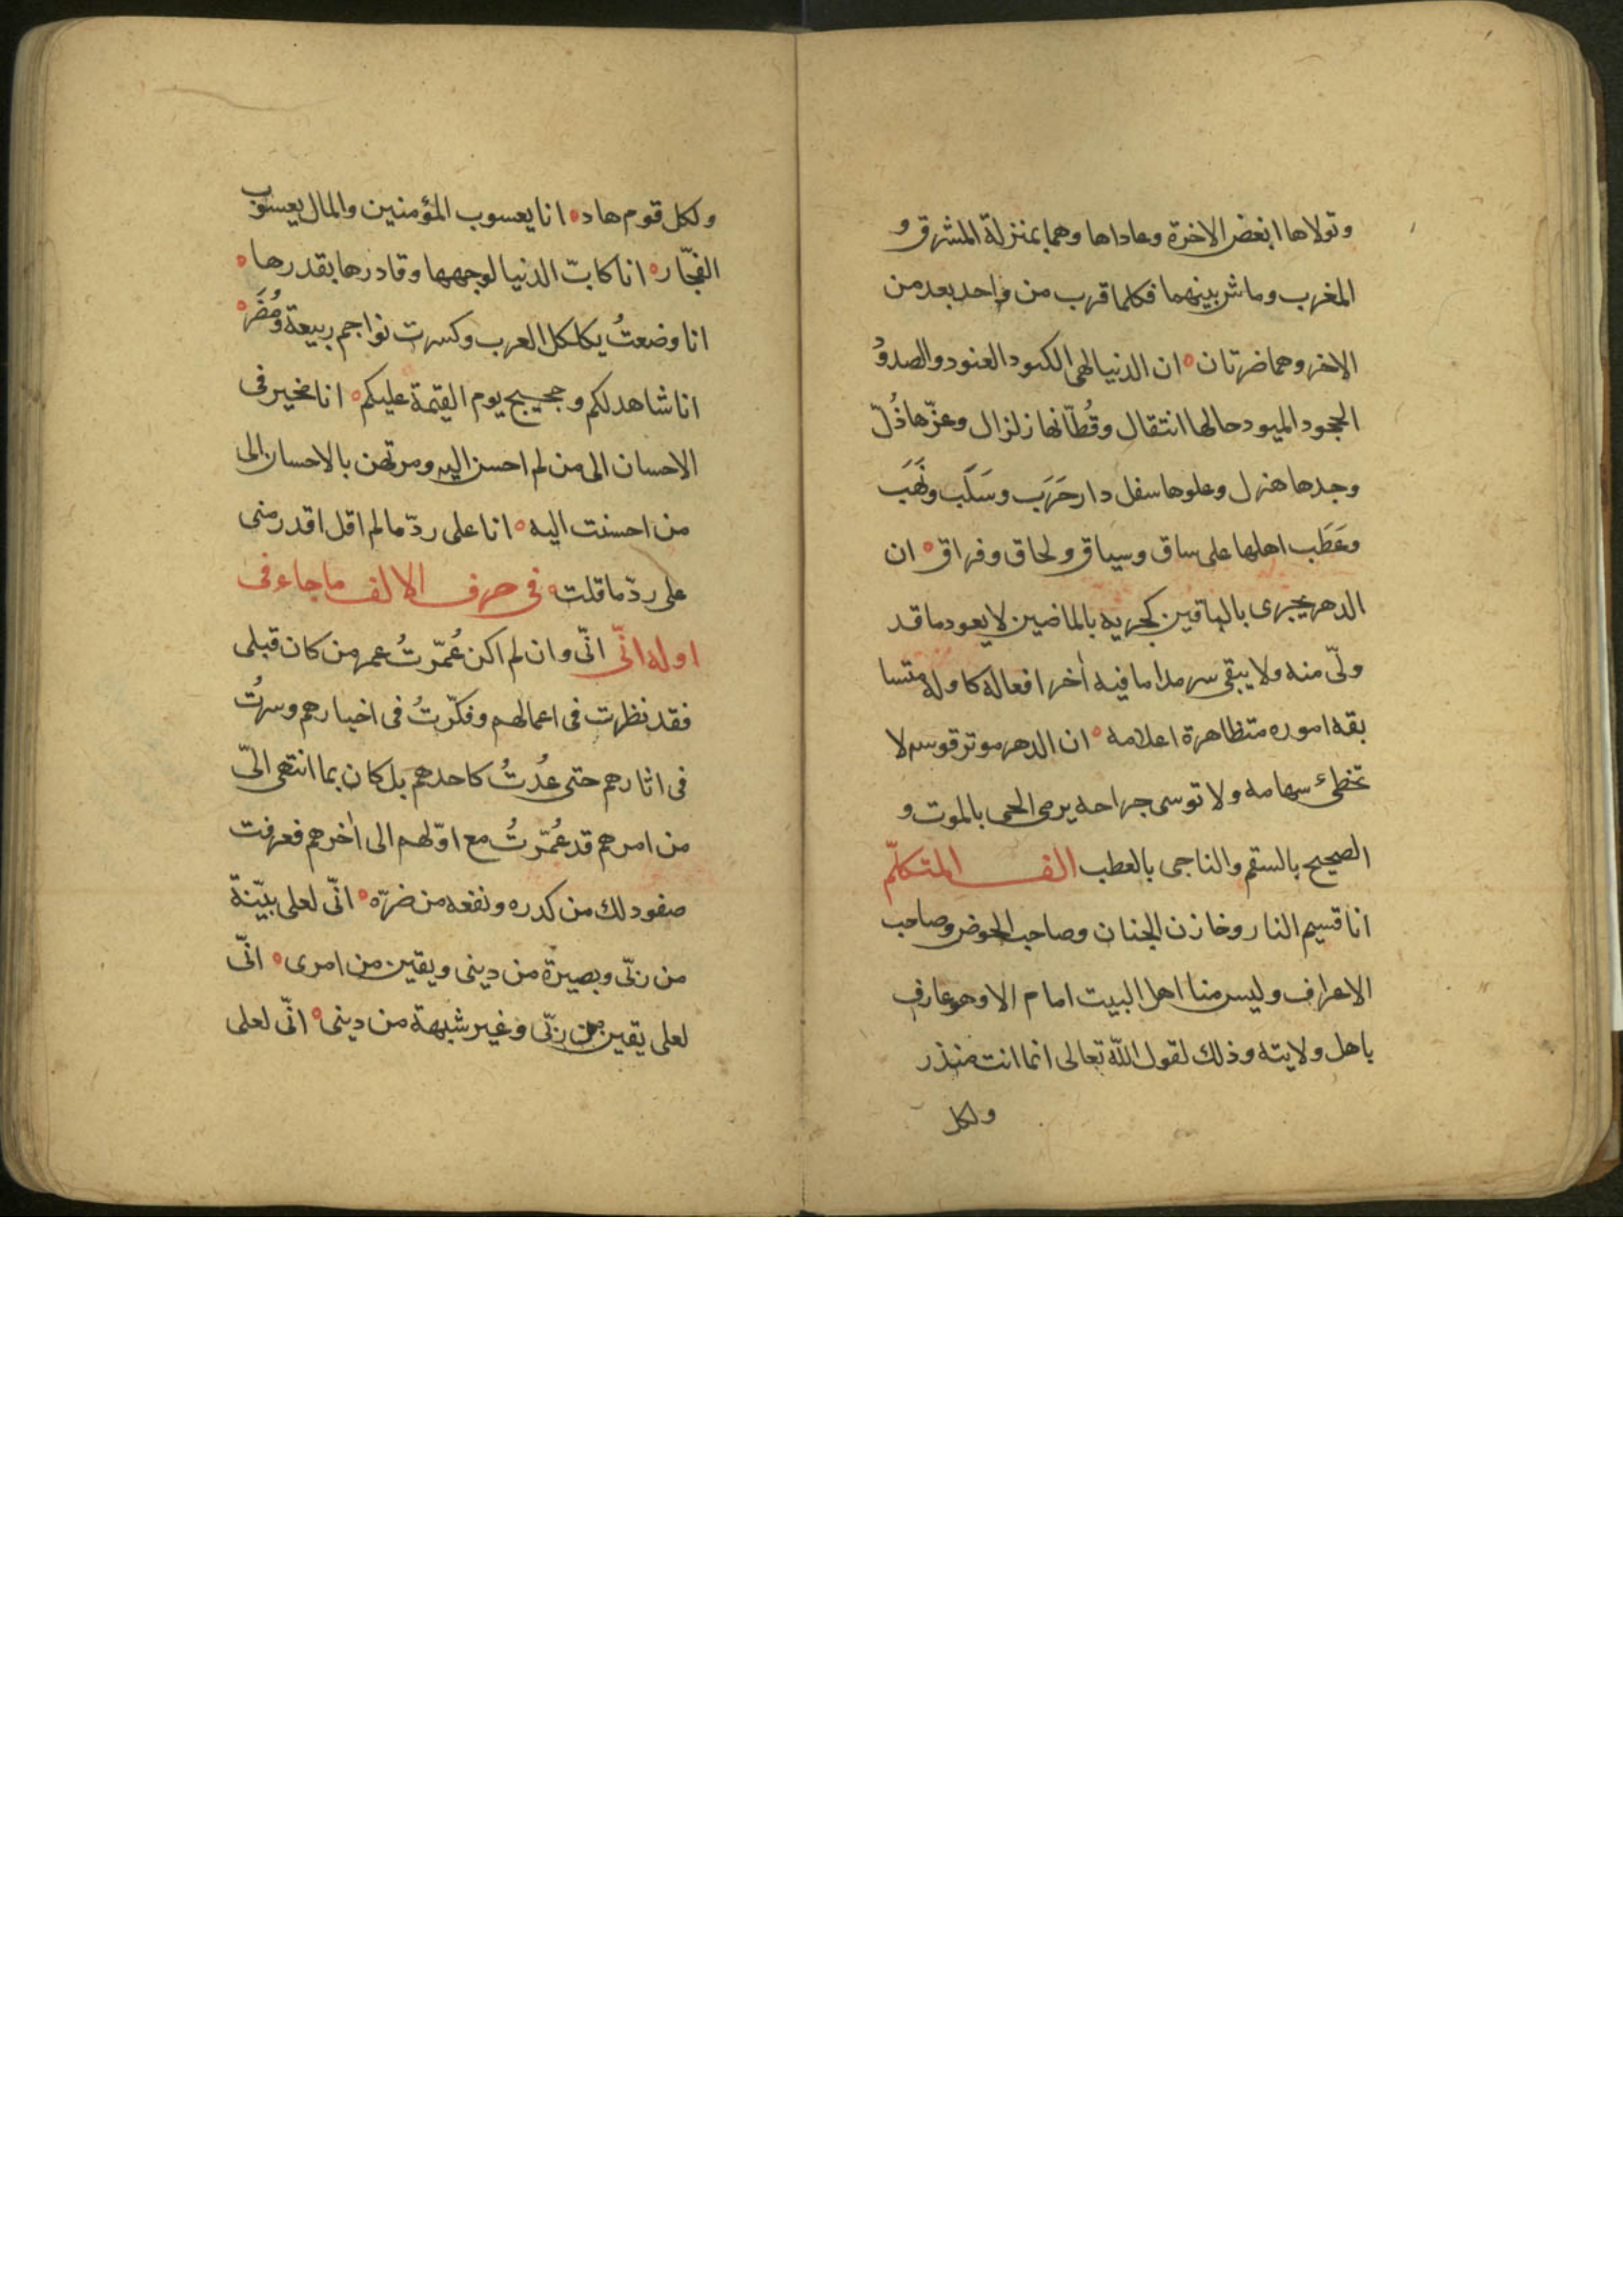 وتولاها ابغض الاخرة وعاداها وهما بمنزلة المشرق و
المغرب وماش بينهما فكلما قرب من واحد بعد من
الاخر وهما ضرتان ه ان الدنيا لهى الكنود العنود والصدوُ
الجحود الميود حالها انتقال وقُطّانها زلزال وعزّها ذُلّ
وجدها هزل وعلوها سفل دار حَرَب وسَلَب ونَهَب
وعَطَب اهلها على ساق وسياق ولحاق وفراق ه ان
الدهر يجرى بالباقين كجريه بالماضين لا يعود ما قد
ولّى منه ولا يبقى سرمدا ما فيه أخر افعاله كاوله متسا
بقه اموره متظاهرة اعلامه ه ان الدهر موتر قوسه لا
تخطئ سهامه ولا توسى جراحه يرمى الحى بالموت و
الصحيح بالسقم والناجى بالعطب الف المتكلّم
انا قسيم النار وخازن الجنان وصاحب الحوض وصاحب
الاعراف وليس منا اهل البيت امام الا وهو عارف
باهل ولايته وذلك لقول اللّه تعالى انما انت منذر
ولكل
ولكل قوم هاد ه انا يعسوب المؤمنين والمال يعسوب
الفجّار ه انا كابّ الدنيا لوجهها وقادرها بقدرها ه
انا وضعتُ بكلكل العرب وكسرت نواجم ربيعة ومُضَر ه
انا شاهد لكم وحجيج يوم القيمة عليكم ه انا مخير فى
الاحسان الى من لم احسن اليه ومرتهن بالاحسان الى
من احسنت اليه ه انا على ردّ ما لم اقل اقدر منى
على ردّ ما قلت ه فى حرف الالف ما جاء فى
اوله انّى انّى وان لم اكن عُمّرتُ عمر من كان قبلى
فقد نظرت فى اعمالهم وفكّرتُ فى اخبارهم وسرتُ
فى اثارهم حتى عُدتُ كاحدهم بل كان بما انتهى الىّ
من امرهم قد عُمّرتُ مع اوّلهم الى أخرهم فعرفت
صفو ذلك من كدره ونفعه من ضرّه ه انّى لعلى بيّنة
من ربّى وبصيرة من دينى ويقين من امرى ه انّى
لعلى يقين من ربّى وغير شبهة من دينى ه انّى لعلى